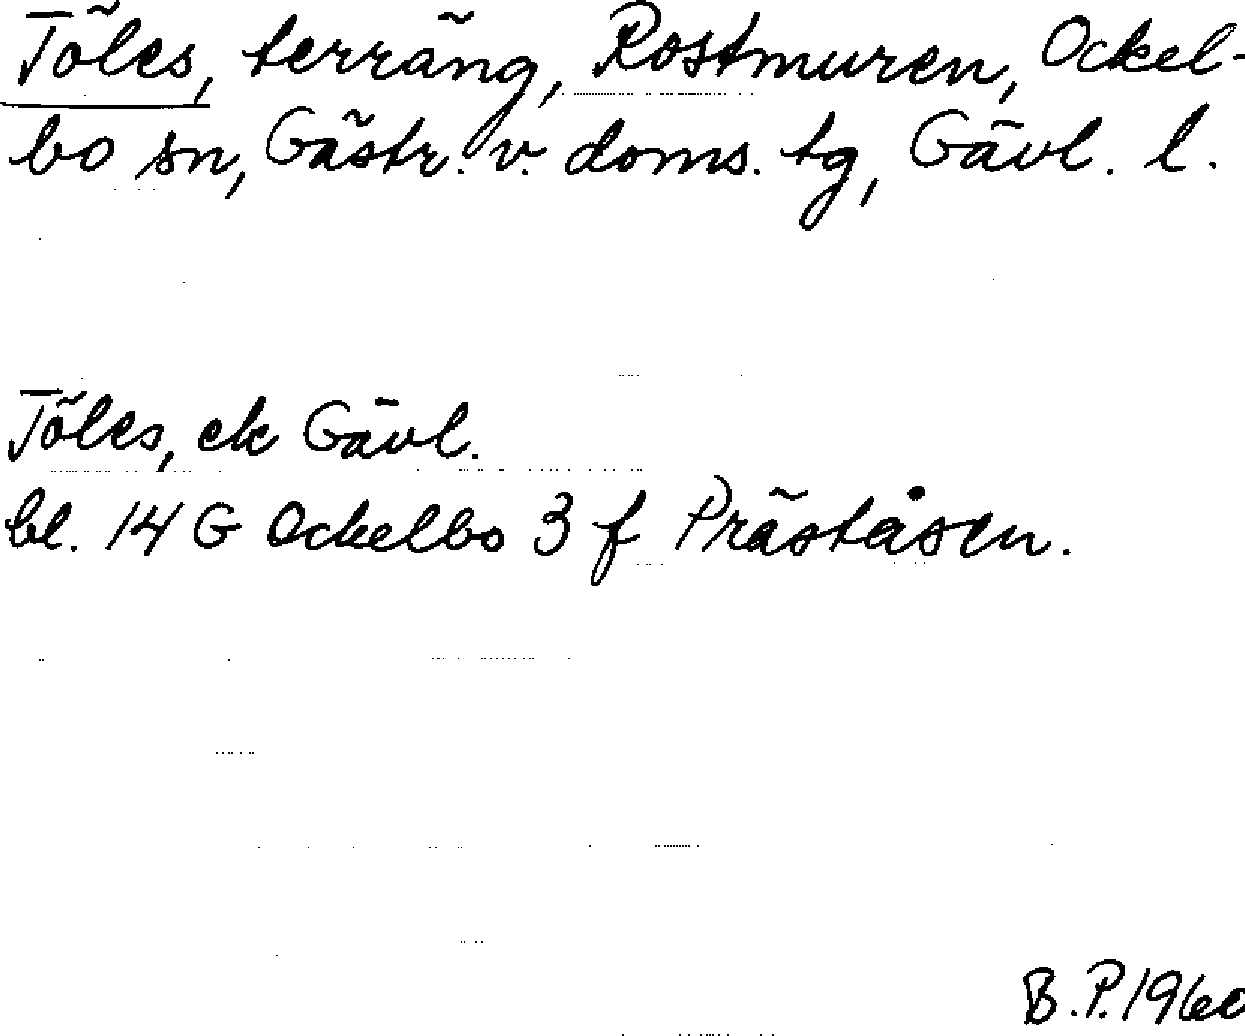 Töles, terräng, Rostmuren, Ockel-
bo sn, Gästr. v. doms. tg, Gävl. l.
Töles, ek Gävl.
bl. 14 G Ockelbo 3 f Präståsen.
B.P. 1960